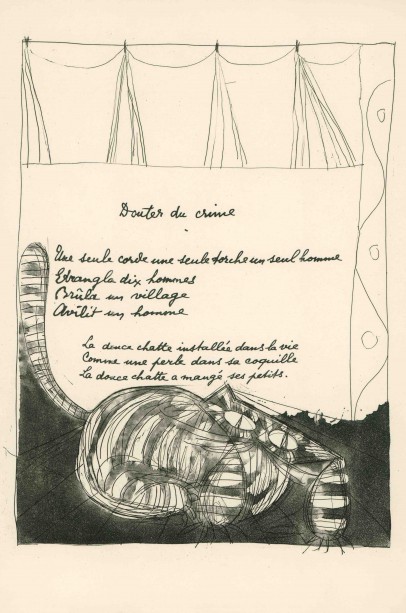 Douter du crime
Une seule corde une seule torche un seul homme
Etrangla dix hommes
Brûla un village
Avilit un homme
La douce chatte installée dans la vie
Comme une perle dans sa coquille
La douce chatte a mangé ses petits.